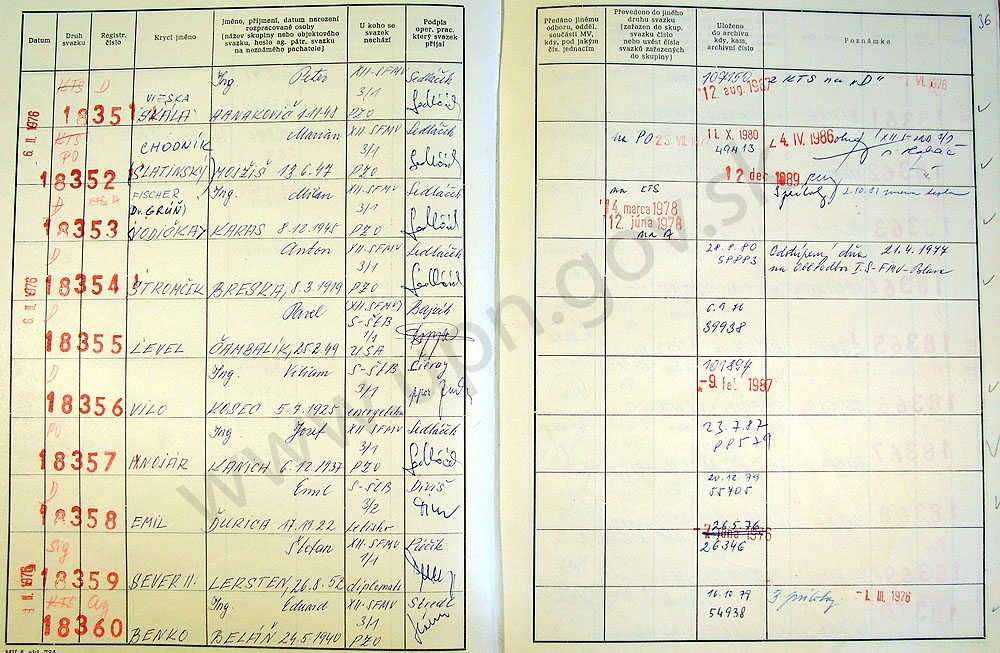 Datum
Druh svazku
Registr. číslo
Krycí jméno
Jméno, příjmení, datum narození
rozpracované osoby
(název skupiny nebo objektového
svazku, heslo ag. pátr. svazku
na neznámého pachatele)
U koho se
svazek
nachází
Podpis
oper. prac.
který svazek
přijal
Předáno jinému
odboru, odděl.
součásti MV,
kdy, pod jakým
čís. jednacím
Převedeno do jiného
druhu svazku
(zařazen do skup.
svazku číslo
nebo uvést čísla
svazků zařazených
do skupiny)
Uloženo
do archivu
kdy, kam,
archivní číslo
Poznámka
36
6. II. 1976
KTS D
18351
VIESKA
SKALA
Ing. Peter
HANAKOVIČ 1.1.48
XII-SFMV
3/1
PZO
Sedláčik
107150
12. aug. 1987
z KTS na "D"
KTS
PO
18352
CHODNÍK
(SLATINSKÝ)
Marián
MOJŽIŠ 13.6.47
XII-SFMV
3/1
PZO
Sedláčik
na PO
11. X. 1980
49413
4. IV. 1986
12 dec 1989
D
18353
FISCHER
Dr. GRÜŇ)
VODIČKA
Ing. Milan
KARAS 8.12.1945
XII-SFMV
3/1
PZO
Sedláčik
na KTS
14. marca 1978
12. júna 1978
na A
D
18354
STROMČEK
Anton
BRESKA, 8.3.1919
XII-SFMV
3/1
PZO
Sedláčik
28.8.80
58883
Odstúpený dňa 21.4.1977
6. II. 1976
18355
LEVEL
Pavel
ČAMBALÍK, 25.2.49
(XII.SFMV)
S-ŠtB
1/1
USA
Bajčík
6.9.76
39938
D
18356
VILO
Ing. Viliam
KOSEC 5.7.1925
S-ŠtB
3/1
energetika
101894
-9. feb. 1987
PO
18357
HNOJÁR
Ing. Jozef
KANICH 6.12.1937
XII-SFMV
3/1
PZO
Sedláčik
23.7.87
88579
D
18358
EMIL
Emil
ĎURICA 17.11.22
S-ŠtB
3/2
Letisko
Diviš
20.12.79
55405
Sig
18359
SEVER II.
Štefan
LERSTEN, 26.8.52
XII-SFMV
1/1
diplomati
Púčik
26.5.76
2. júna 1976
26346
9. II. 1976
KTS Ag
18360
BENKO
Ing. Eduard
BELÁŇ 24.5.1940
XII-SFMV
3/1
PZO
Stredl
16.10.79
54938
3 prílohy
-1. III. 1976
www.upn.gov.sk